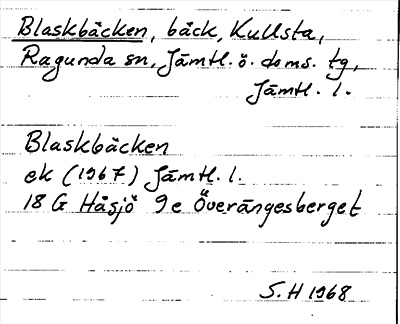 Blaskbäcken, bäck, Kullsta,
Ragunda sn, Jämtl. ö. doms. tg,
Jämtl. l.
Blaskbäcken
ek (1967) Jämtl. l.
18 G Håsjö 9e Överängesberget
S.H 1968